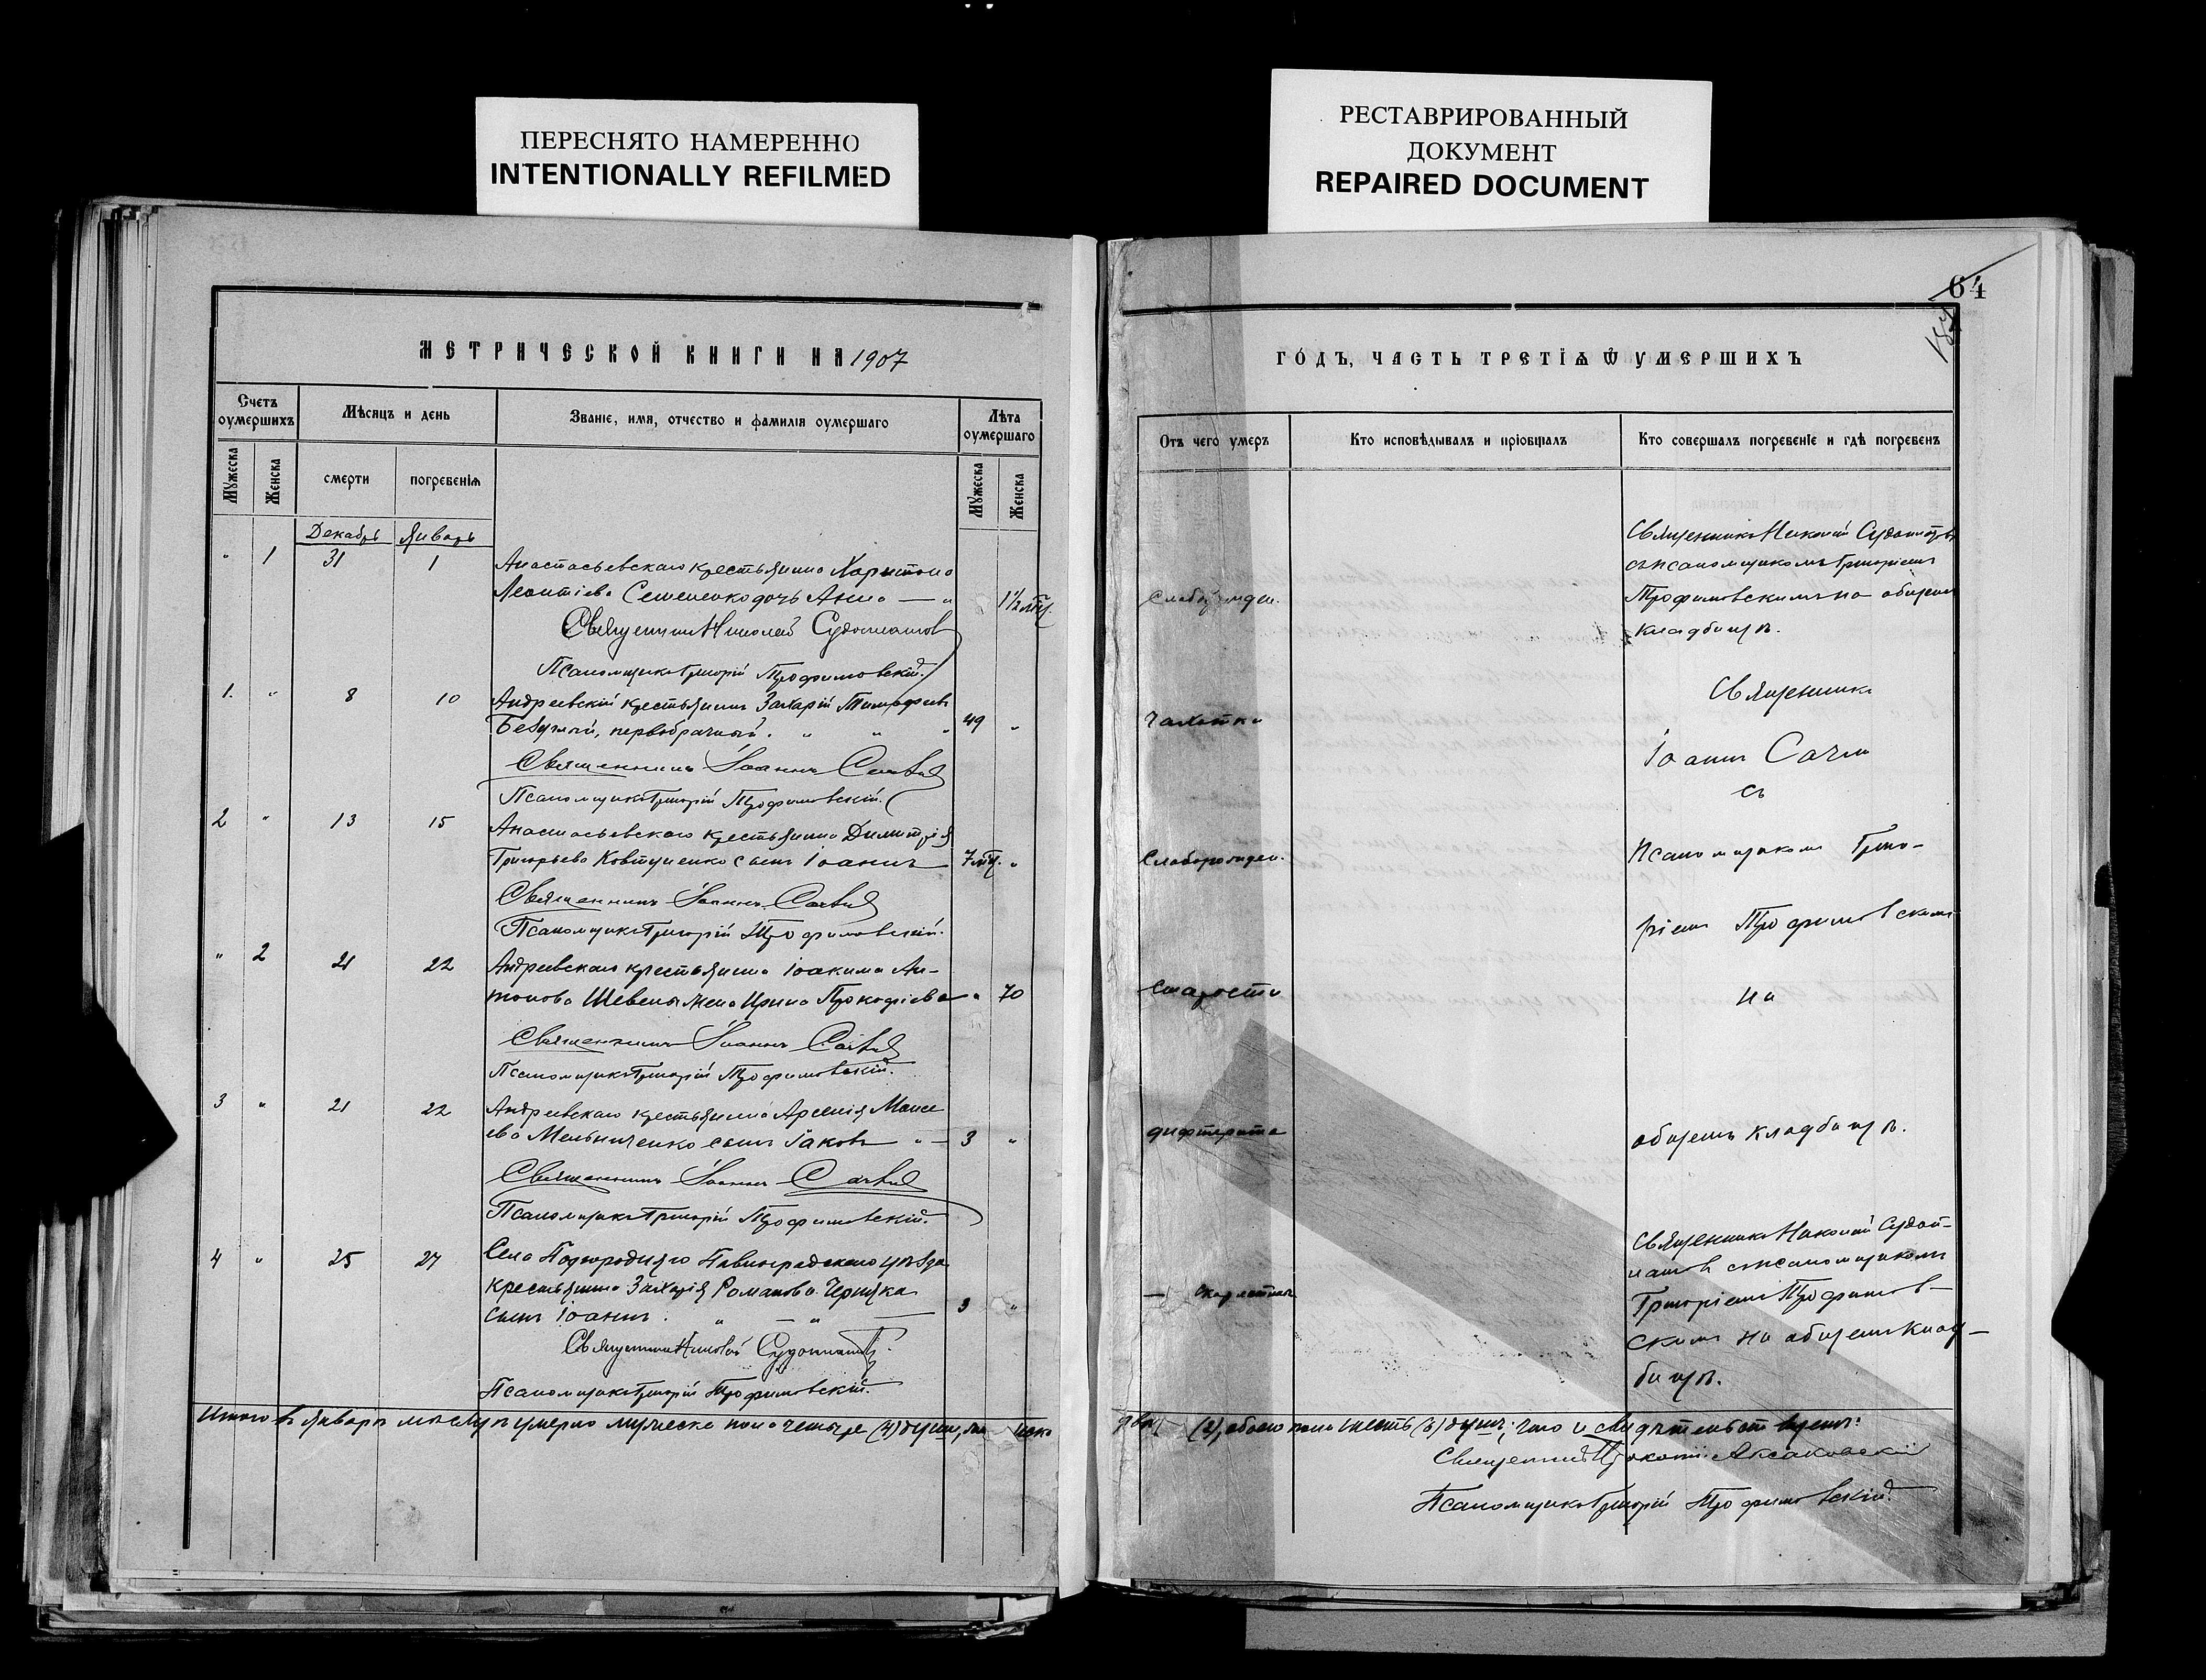 ПЕРЕСНЯТО НАМЕРЕННО
INTENTIONALLY REFILMED
РЕСТАВРИРОВАННЫЙ
ДОКУМЕНТ
REPAIRED DOCUMENT
64
МЕТРИЧЕСКОЙ КНИГИ НА 1907
Счетъ оумершихъ
Мѣсяцъ и день
Званіе, имя, отчество и фамилія оумершаго
Лѣта оумершаго
Мужеска
Женска
смерти
погребенія
Мужеска
Женска
Декабрь Январь
" 1 31 1
Анастасьевскаго крестьянина Харитона
Леонтіева Семененко дочь Анна — " 1½ мѣс.
Священникъ Николай
Псаломщикъ Григорій Трофимовскій.
1. " 8 10
Андреевскій крестьянинъ Захарій Тимофеевъ
первобрачный. " " " 49 "
Священникъ Іоаннъ
Псаломщикъ Григорій Трофимовскій.
2 " 13 15
Анастасьевскаго крестьянина Димитрія
Григорьева Ковтуненко сынъ Іоаннъ 7 мѣс. "
Священникъ Іоаннъ
Псаломщикъ Григорій Трофимовскій.
" 2 21 22
Андреевскаго крестьянина Іоакима Ан-
тонова жена Ирина Прокофіева " 70
Священникъ Іоаннъ
Псаломщикъ Григорій Трофимовскій.
3 " 21 22
Андреевскаго крестьянина Арсенія Моисе
ева Мельниченко сынъ Іаковъ " — 3 "
Священникъ Іоаннъ
Псаломщикъ Григорій Трофимовскій.
4 " 25 27
Села Подгородняго Павлоградскаго уѣзда
крестьянина Захарія Романова Черняка
сынъ Іоаннъ. " — " — 3 "
Священникъ Николай
Псаломщикъ Григорій Трофимовскій.
Итого въ Январѣ мѣсяцѣ умерло мужеска пола четыре (4) души, женска
ГОДЪ, ЧАСТЬ ТРЕТІЯ Ѿ УМЕРШИХЪ
Отъ чего умеръ
Кто исповѣдывалъ и пріобщалъ
Кто совершалъ погребеніе и гдѣ погребенъ
Священникъ Николай
съ псаломщикомъ Григоріемъ
Трофимовскимъ на общемъ
кладбищѣ.
Чахотки
Священникъ
Іоаннъ
съ
Слаборожден.
Псаломщикомъ Григо-
ріемъ Трофимовскимъ
Старости
на
дифтерита
общемъ кладбищѣ.
Священникъ Николай
съ псаломщикомъ
— скарлатины
Григоріемъ Трофимов-
скимъ на общемъ клад-
бищѣ.
двѣ (2), обоего пола шесть (6) душъ; что и свидѣтельствуемъ:
Священникъ Прокопій Аксаковскій
Псаломщикъ Григорій Трофимовскій.